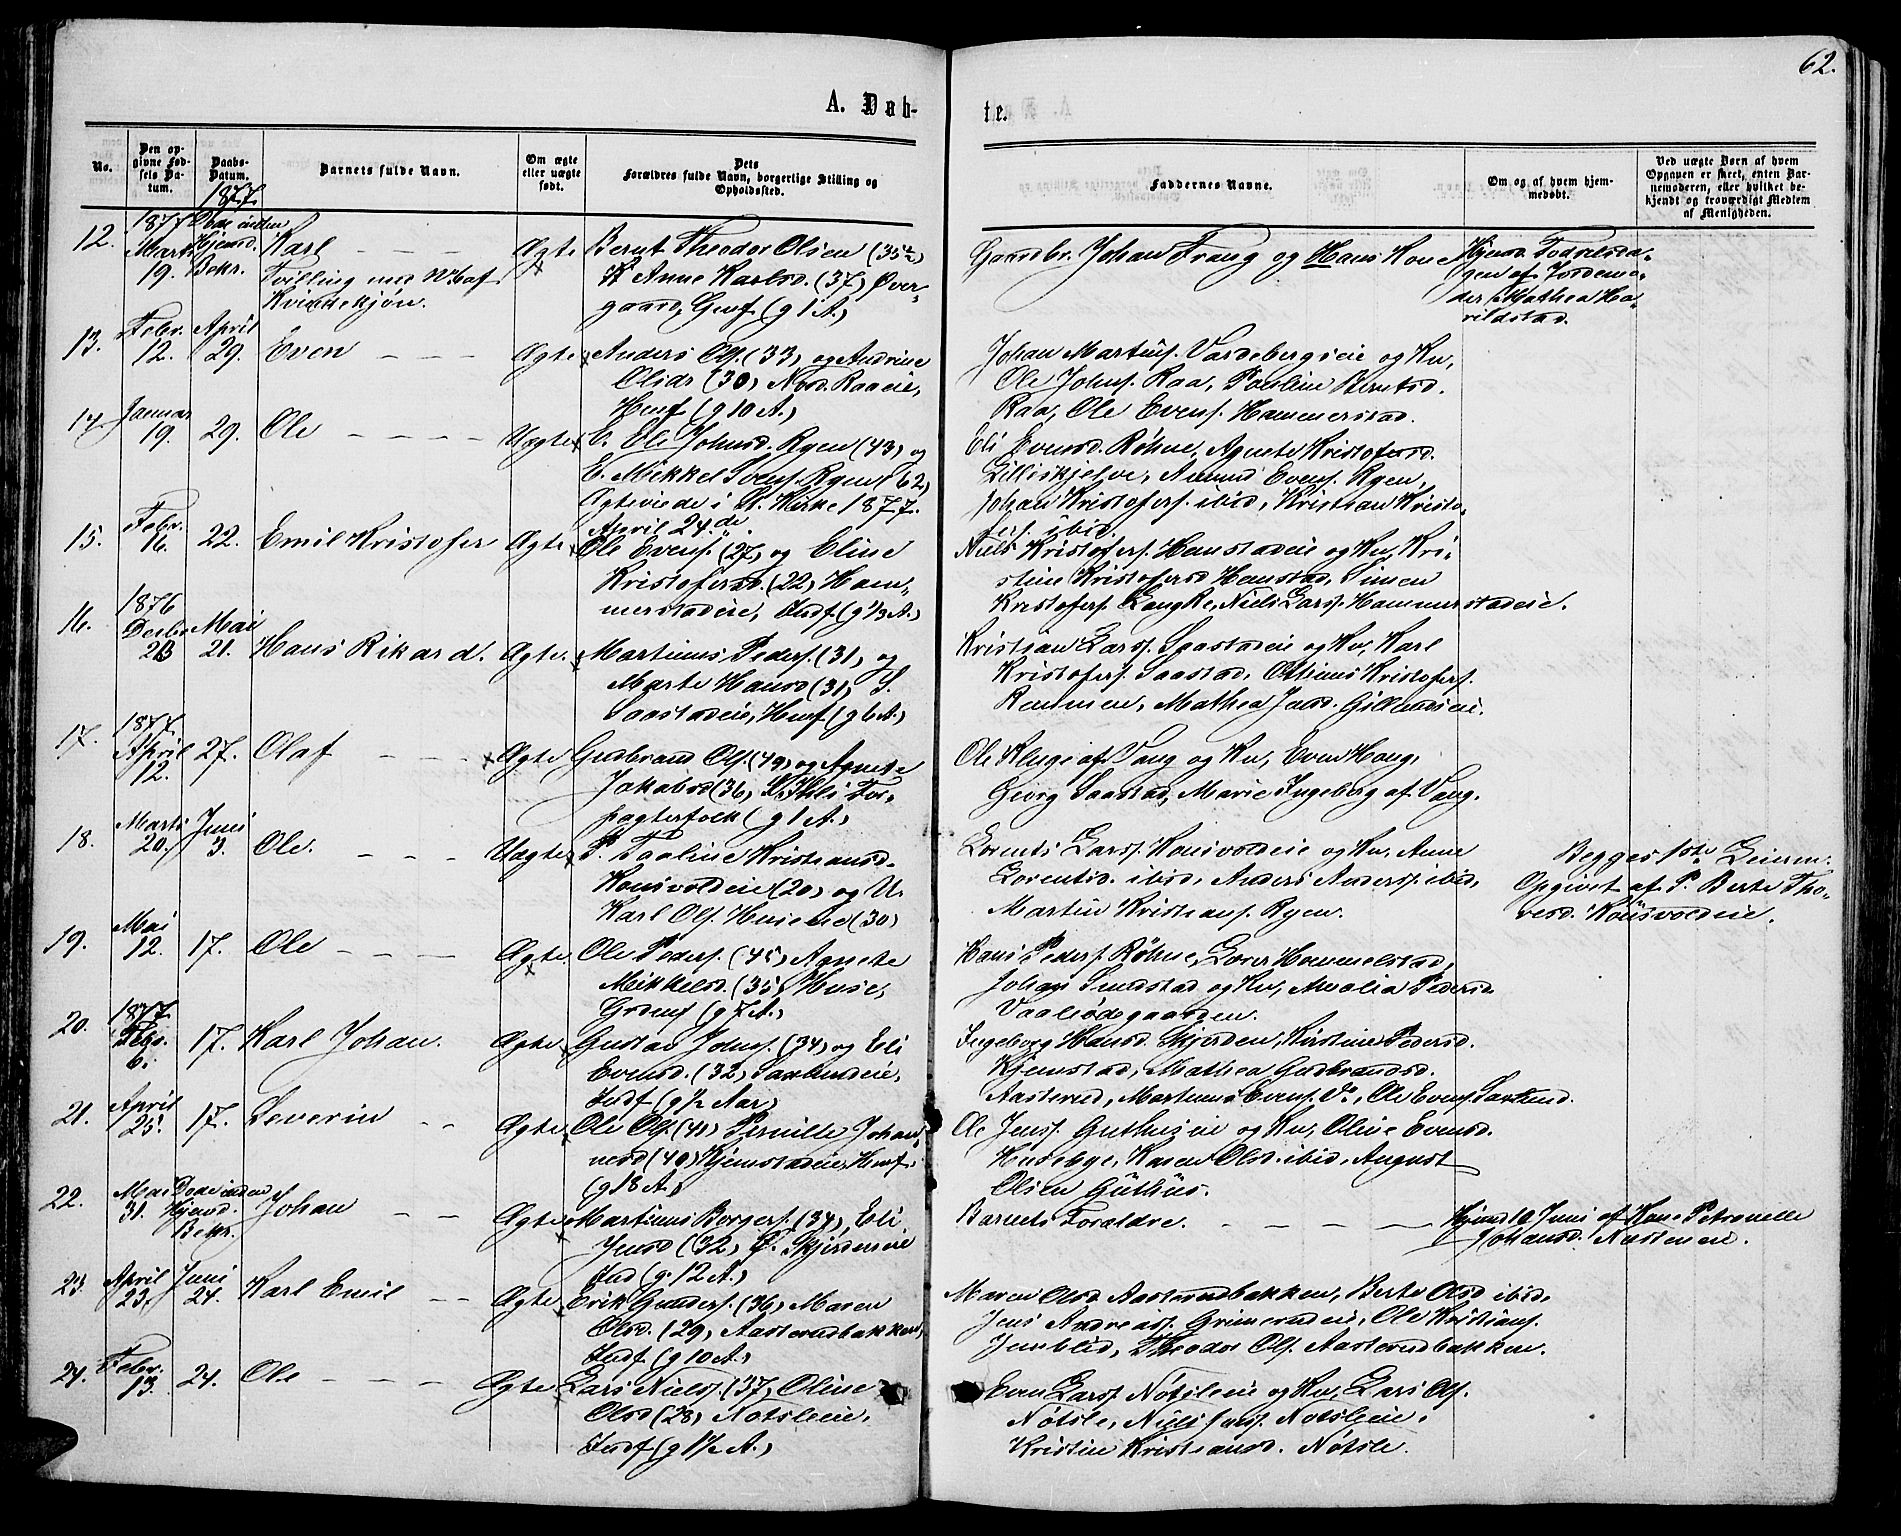 62.
A. Døb-
te.
No.
Den op-
givne Fød-
sels Da-
tum.
Daabs-
Datum.
Barnets fulde Navn.
Om ægte
eller uægte
født.
Dets
Forældres fulde Navn, borgerlige Stilling og
Opholdssted.
Faddernes Navne.
Om og af hvem hjem-
medøbt.
Ved uægte Børn af hvem
Opgaven er skeet, enten Bar-
nemoderen, eller hvilket be-
kjendt og troværdigt Medlem
af Menigheden.
1877
12.
1877
Marts
19.
Døde inden
Hjemd.
Bekr.
Karl
Tvilling med
Kvindekjøn.
Ægte
Bernt Theodor Olsen (35
K Anne Karlsd. (37) Øver-
gaard, Gmf (g 1 A)
Gaardbr. Johan Frang og Hans Kone
Hjemd. Fødselsda-
gen af Jordemo-
der Mathea Ha-
rildstad.
13.
Febr.
12.
April
29.
Even
Ægte
Anders Ols. (33) og Andrine
Olsdr (30) Raaeie,
Hmf (g 10 A)
Johan Martins. Vardebergseie og Ku,
Ole Johns. Raa, Pauline Berntsd.
Raa, Ole Evens. Hammerstad.
14
Januar
19.
29.
Ole
Uægte
E. Eli Johnsd. Ryen (43) og
E. Mikkel Svens. Ryen (62)
Ægteviede i Kirke 1877.
April 24de.
Eli Evensd. Røhne, Agnete Kristofersd.
Gilliskjelve, Amund Evens. Ryen,
Johan Kristofers. ibid, Kristian Kristo-
fers. ibid.
15.
Febr.
16.
22.
Emil Kristofer
Ægte
Ole Evens. (27) og Eline
Kristofersd. (22) Ham-
merstadeie, Indf (g 1/3 A)
Niels Kristofers. Honstadeie og Ku, Kri-
stine Kristofersd Honstad, Simen
Kristofers. Lang Re, Niels Larss. Hammerstadeie.
16.
1876
Decbr
Mai
21.
Hans Rikard.
Ægte.
Martinus Peders. (31) og
Marte Hansd (31) S.
Saastadeie, Hmf (g 6 A)
Kristian Larss. Saastadeie og Ku, Karl
Kristofers. Saastad, Kristofers.
Remmen, Mathea Jensd. Gillundseie.
17.
1877.
April
12.
27.
Olaf
Ægte
Gudbrand Ols. (49) og Agnete
Jakobsd (36) For-
pagterfolk (g 1 A)
Ole Kluge af Vang og Ku, Even Haug,
Georg Saastad, Marie Ingeborg af Vang.
18.
Marts
20.
Juni
3.
Ole.
Uægte
P. Paaline Kristiansd.
Konsvoldeie (20) og U.
Karl Ols. Huseeie (30)
Lorents Larss. Konsvoldeie og Ku, Anne
Lorentsd. ibid, Anders Anderss. ibid,
Martin Kristians. Ryen.
Begges 1ste Leierm.
Opgivet af P. Berte Tho-
resd. Konsvoldeie.
19.
Mai
12.
17.
Ole
Ægte.
Ole Peders. (45) Agnete
Mikkelsd. (35) Huse,
Grdmf (g 7 A)
Hans Peders. Røhne, Lover Hommelstad,
Johan Sundstad og Ku, Amalia Pedersd.
Vaaliødegaarden.
20.
1877
Febr.
6.
17.
Karl Johan.
Ægte
Gustav Johns. (34) og Eli
Evensd. (32) Saxlundeie,
Indf (g 1/2 Aar)
Ingeborg Hansd. Skjerden, Kirstine Pedersd.
Kjemstad, Mathea Gudbrandsd.
Aasterud, Martinus Evens. Do, Ole Evens. Saxlund.
21.
April
25.
17.
Severin
Ægte.
Ole Ols. (41) Pernille Johan-
nesd (40) Kjemstadeie, Hmf.
(g 18 A)
Ole Jenss. Guthuseie og Ku, Olive Evensd.
Husebye, Karen Olsd. ibid, August
Olsen Guthus.
22.
Mai
31.
Døde inden
Hjemd.
Bekr.
Johan
Ægte
Martinus Borgers. (34), Eli
Jensd (32) Skjerdeneie
Ind (g. 12 A)
Barnets Forældre.
Hjemd 10 Juni af Kone Petronelle
Johansd. Aasteneie.
23.
April
23.
Juni
24.
Karl Emil
Ægte
Erik Gunders. (36) Maren
Olsd. (29) Aasterudbakken,
Indf (g 10 A)
Maren Olsd Aasterudbakken, Berte Olsd ibid,
Jens Andreass. Grimerudeie, Ole Kristians.
Jemblid, Theodor Ols. Aasterudbakken.
24.
Febr.
13.
24.
Ole
Ægte
Lars Niels. (37) Oline
Olsd (28) Nøtsleeie,
Indf (g 1 1/2 A)
Even Larss. Nøtsleeie og Ku, Lars Ols.
Nøtsle, Niels Larss. Nøtsleeie,
Kristine Kristiansd. Nøtsle.